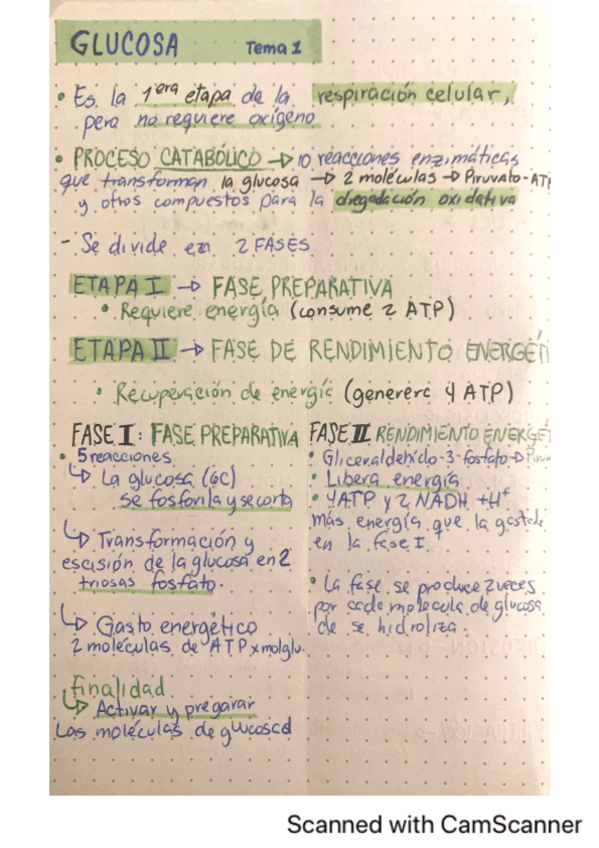 GLUCOSA Tema 1
• Es la 1era etapa de la respiración celular,
pero no requiere oxígeno
• PROCESO CATABÓLICO → 10 reacciones enzimáticas
que transforman la glucosa → 2 moléculas → Piruvato-AT
y otros compuestos para la degradación oxidativa
- Se divide en 2 FASES
ETAPA I → FASE PREPARATIVA
• Requiere energía (consume 2 ATP)
ETAPA II → FASE DE RENDIMIENTO ENERGÉTI
• Recuperación de energía (genere 4 ATP)
FASE I: FASE PREPARATIVA
• 5 reacciones
↳ La glucosa (6C)
se fosforila y se corta
↳ Transformación y
escisión de la glucosa en 2
triosas fosfato.
↳ Gasto energético
2 moléculas de ATP x molglu.
finalidad
↳ Activar y pregarar
Las moléculas de glucosad
FASE II RENDIMIENTO ENERGÉT
• Gliceraldehído-3-fosfato → Piruv
• Libera energía
• 4ATP y 2 NADH + H+
Más energía que la gastada
en la fase I
• La fase se produce 2 veces
por cada molecula de glucosa
de se hidroliza.
Scanned with CamScanner